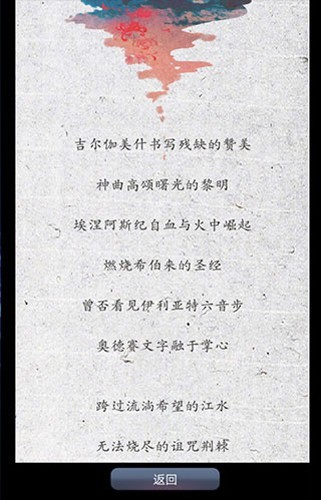 吉尔伽美什书写残缺的赞美
神曲高颂曙光的黎明
埃涅阿斯纪自血与火中崛起
燃烧希伯来的圣经
曾否看见伊利亚特六音步
奥德赛文字融于掌心
跨过流淌希望的江水
无法烧尽的诅咒荆棘
返回